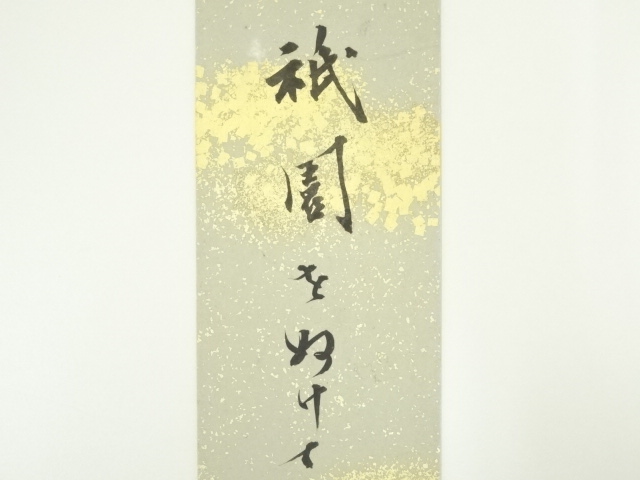 祇園をぬけて